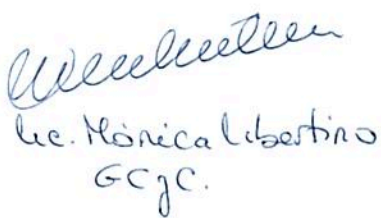 Lic. Mónica Libertino
GCyC.